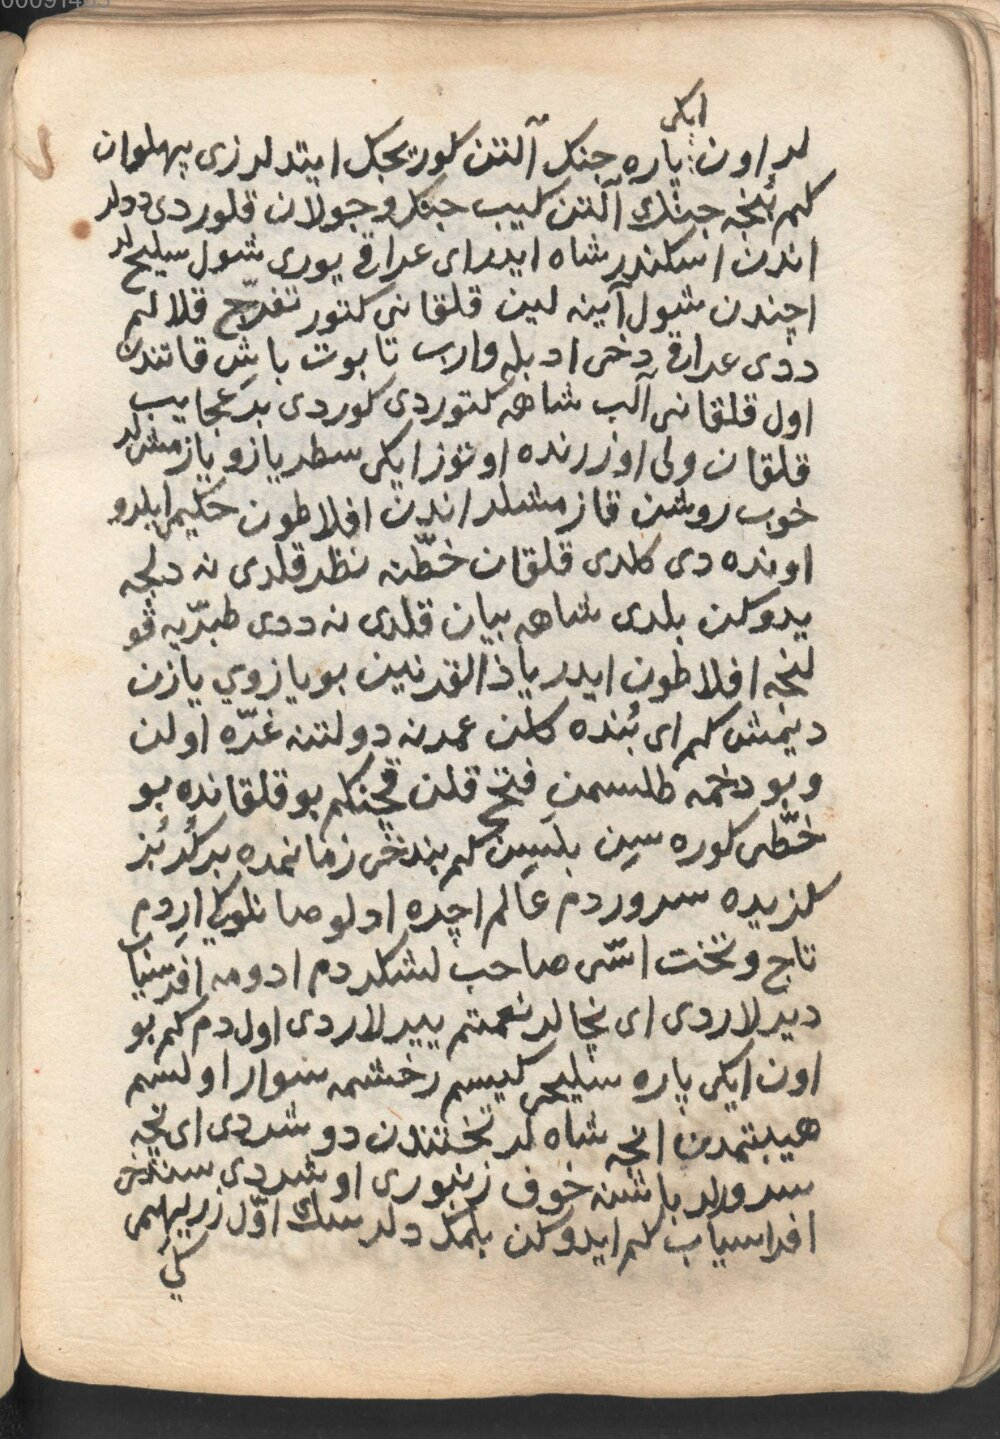 ايكى
لر اون پاره جنك آلتن كوريجك ايتدلر زى پهلوان
كم بُنجه جنك آلتن كيب جنك و جولان قلوردى ددلر
اندن اسكندر شاه ايدر اى عراقى يورى شول سليحلر
اچندن شول آينه لين قلقانى كتور تفرّج قلالم
ددى عراقى دخى اد بله وارب تابوت باش قاتندن
اول قلقانى آلب شاهه كتوردى كوردى بر عجايب
قلقان ولى اوزرنده اوتوز ايكى سطر يازو يازمشلر
خوب روشن قازمشلر اندن افلاطون حكيم ايلرو
اونده دى كلدى قلقان خطّنه نظر قلدى نه دلجه
يدوكن بلدى شاهه بيان قلدى نه ددى طبرّيه قو
لنجه افلاطون ايدر يا ذالقرنين بو يازوي يازن
ديمش كم اى بُنده كلن عمرنه دولتنه غرّه اولن
و بو دخمه طلسمن فتح قلن قچنكم بو قلقانده بو
خطّى كوره سين بلسين كم بندخى زمانمده بر كُرُبُز
كزيده سروردم عالم اچده ادلو صانلويدم
تاج و تخت اسّى صاحب لشكردم ادومه افرسياب
ديرلاردى اى نجالر نعمتم ييرلاردى اول دم كم بو
اون ايكى پاره سليحى كيسم رخشمه سوار اولسم
هيبتمدن انجه شاه لر تختندن دوشردى اى نچه
سرورلر باشنه خوف زنبورى اوشردى سندخى
افراسياب كم ايدوكن بلمك دلرسك اوّل زر ليهمى
كى